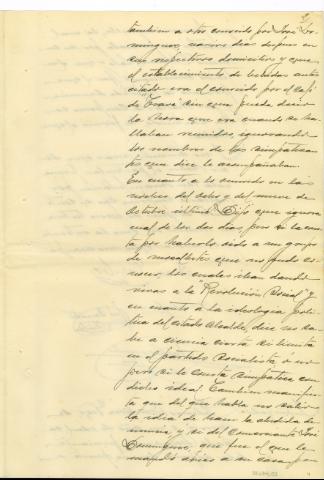 tambien a otro conocido por José Do-
minguez, varios dias despues en
sus respectivos domicilios y que
el establecimiento de bebidas antes
citado era el conocido por el café
de sin que pueda decir
la hora que era cuando se ha-
llaban reunidos, ignorando
los nombres de los simpatizan-
tes que dice le acompañaban.
En cuanto a lo ocurrido en las
noches del ocho y del nueve de
Octubre último: Dijo que ignora
cual de los dos dias, pero si le cons-
ta por haberlo oido a un grupo
de mozalbetes que no pudo co-
nocer, los cuales iban dando
vivas a la "Revolución Social" y
en cuanto a la ideologia poli-
tica del citado Alcalde, dice no sa-
be a ciencia cierta si milita
en el partido Socialista o no
pero si le consta simpatiza con
dicho ideal. Tambien manifies-
ta que del que habla no salió
la idea de
y si del Comandante José
Dominguez, que fue el que le
mandó a su casa por